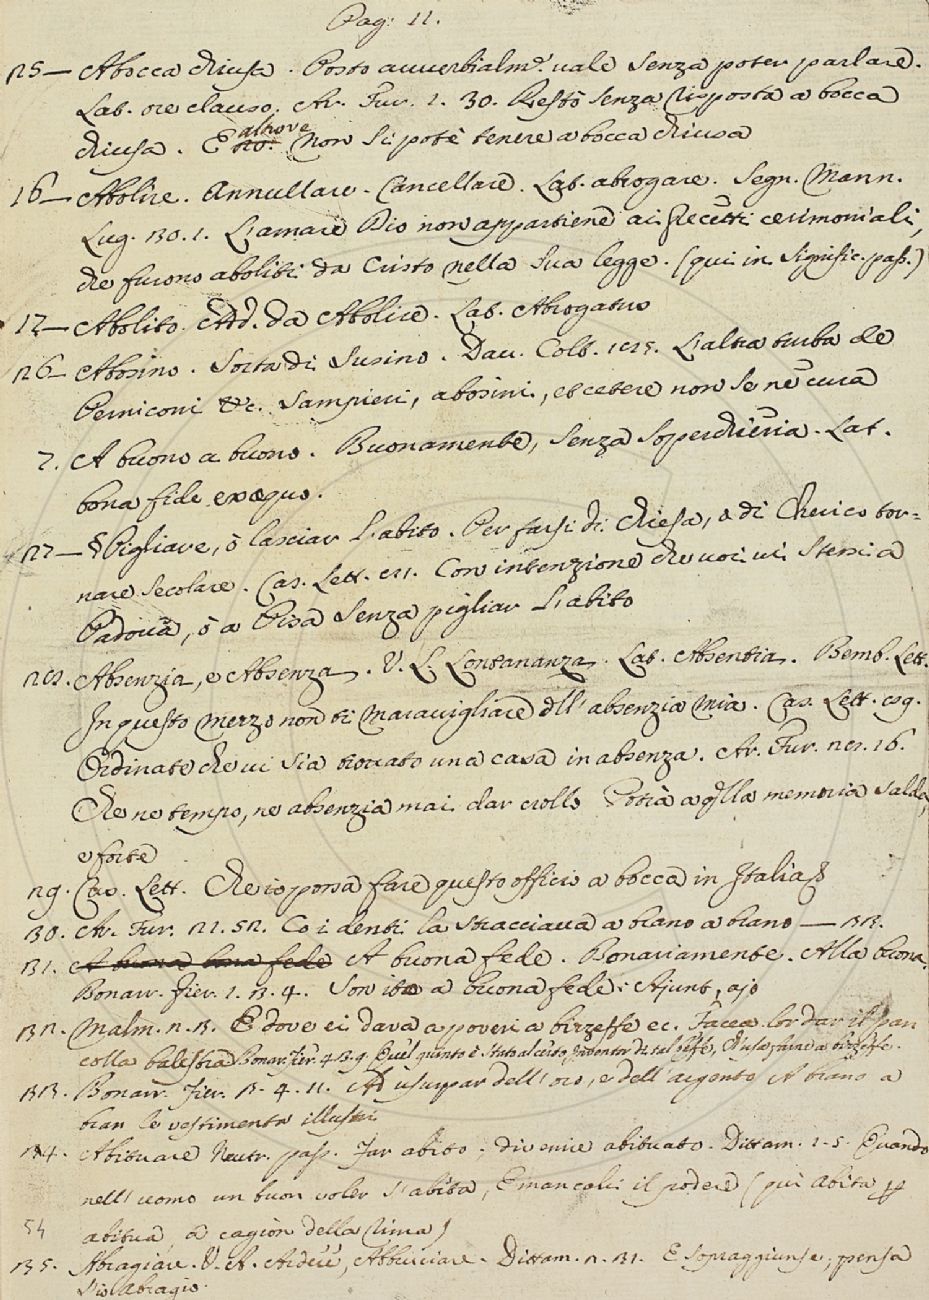 Pag: 11.
25— A bocca chiusa. Posto avverbialm.e vale Senza poter parlare.
Lat. ore clauso. Ar. Fur. 1. 30. Restò senza risposta a bocca
chiusa. E altrove Non si potè tenere a bocca chiusa
16— Abolire. Annullare. Cancellare. Lat. abrogare. Segn. Mann.
Lug. 30. 1. L'amare Dio non appartiene ai precetti cerimoniali,
che furono aboliti da Cristo nella Sua legge. (qui in Signific. pass.)
17— Abolito. Add. da Abolire. Lat. Abrogatus
26— Abosino. Sorta di Susino. Dav. Colt. L'altra turba de
Perniconi &c. Sampieri, abosini, et cetere non se ne cura
7. A buono a buono. Buonamente, Senza soperchieria. Lat.
bona fide ex æquo.
27— § Pigliare, ò lasciar L'abito. Per farsi di chiesa, o di Cherico tor=
nare secolare. Cas. Lett. Con intenzione che voi vi stessi a
Padova, ò a Pisa Senza pigliar L'abito
28. Absenzia, e Absenza. V. L. Lontananza. Lat. Absentia. Bemb. Lett.
In questo mezzo non ti maravigliare dell'absenzia mia. Cas. Lett.
Ordinate che vi sia trovato una casa in absenza. Ar. Fur. 16.
Che ne tempo, ne absenzia mai dar crollo Potrà a qlla memoria salda,
e forte
29. Cas. Lett. Che io possa fare questo officio a bocca in Italia
30. Ar. Fur. 21. 52. Co i denti la stracciava a brano a brano — 33.
31. A buona bona fede A buona fede. Bonariamente. Alla buona.
Bonarr. Fier. 1. 3. 4. Son ito a buona fede: Ajunt, ajo
32. Malm. 2. 3. E dove ei dava a poveri a bizzeffe ec. Facea lor dar il pan
colla balestra Bonar. Fier. 4. 3. 9.
33. Bonarr. Fier. 3. 4. 11. Ad usurpar dell'oro, e dell'argento A brano a
bran le vestimenta illustri
34. Abituare Neutr. pass. Far abito, divenire abituato. Dittam. 1. 5. Quando
nell'uomo un buon voler s'abita, E mancali il podere (qui abita p
54 abitua, a cagion della rima)
35. Abragiare. V. A. Ardere, Abbruciare. Dittam. 2. 31. E sopraggiunse, pensa
s'io Abragio.